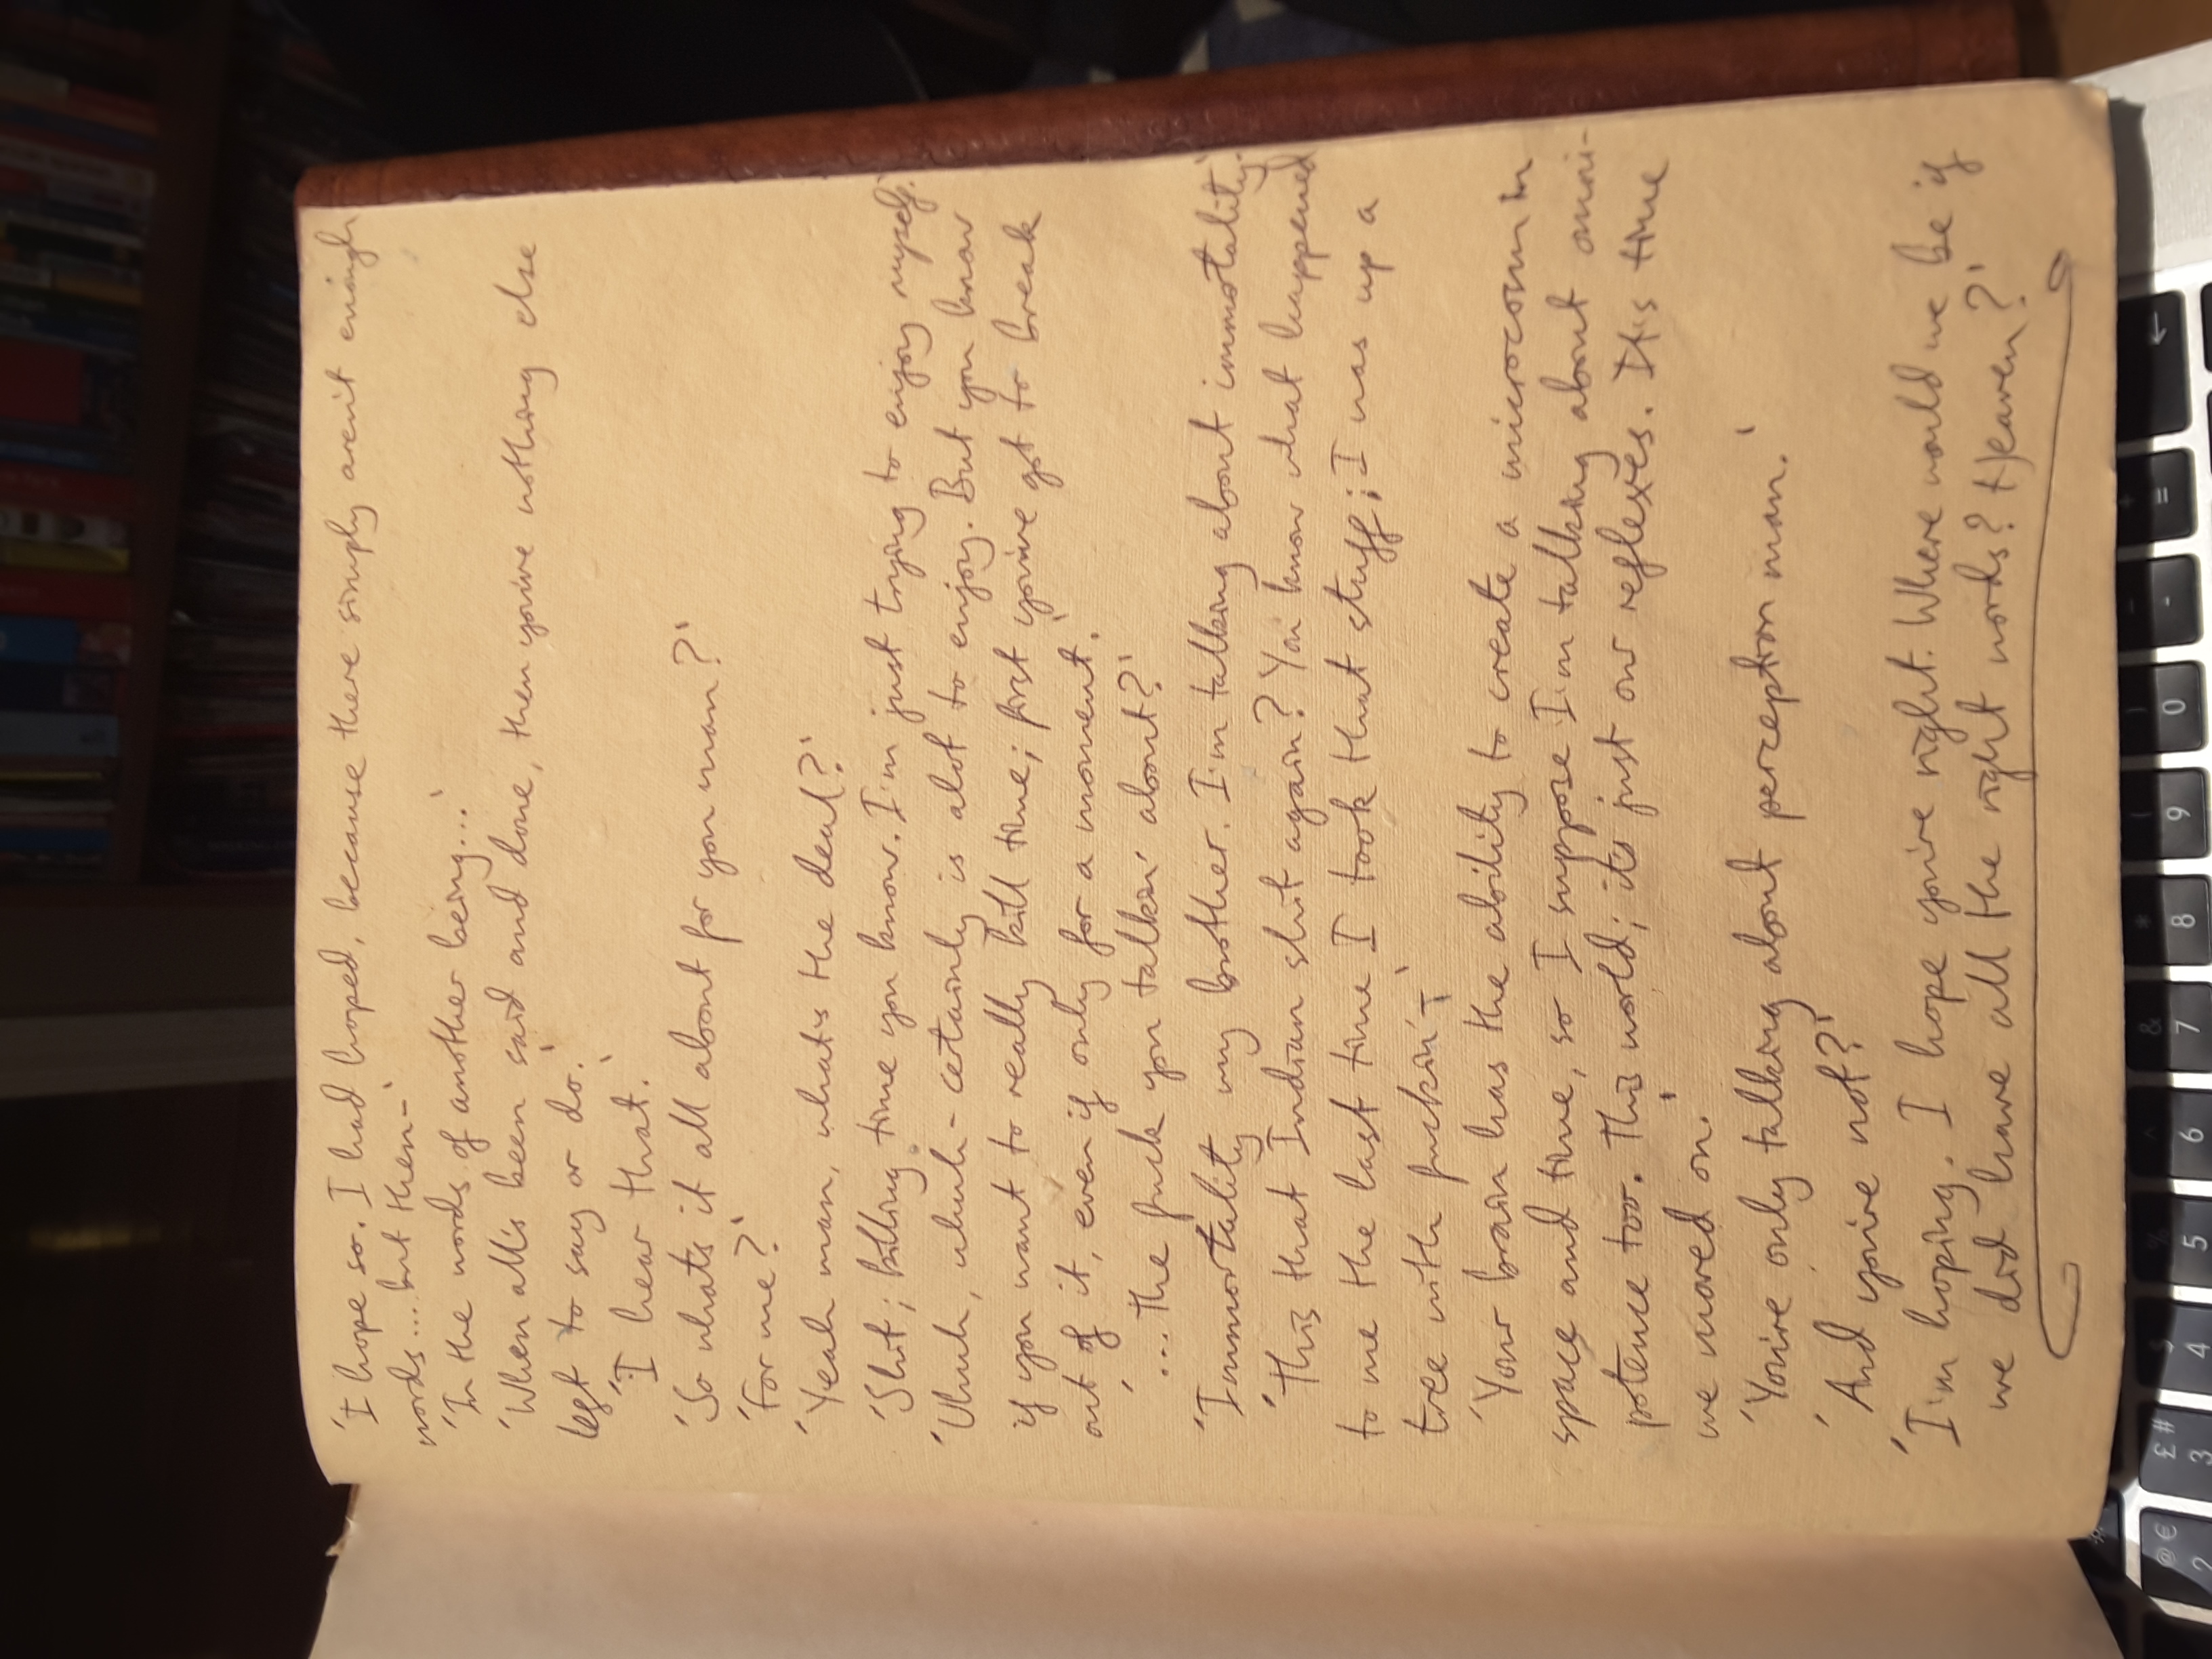 'I hope so. I had hoped, because there simply aren't enough
words... but then-'
'In the words of another being...'
'When all's been said and done, then you've nothing else
left to say or do.'
'I hear that.'
'So what's it all about for you man?'
'For me?'
'Yeah man, what's the deal?'
'Shit; killing time you know. I'm just trying to enjoy myself.'
'Uhuh, uhuh - certainly is alot to enjoy. But you know
if you want to really kill time; first you've got to break
out of it, even if only for a moment.'
'... the fuck you talkin' about?'
'Immortality my brother. I'm talking about immortality.'
'This that Indian shit again? You know what happened
to me the last time I took that stuff; I was up a
tree with fuckin'-'
'Your brain has the ability to create a microcosm in
space and time, so I suppose I'm talking about omni-
potence too. This world; it's just our reflexes. It's time
we moved on.'
'You're only talking about perception man.'
'And you're not?'
'I'm hoping. I hope you're right. Where would we be if
we did have all the right words? Heaven?'
@ €
2
£ #
3
$
4
%
5
^
6
&
7
*
8
(
9
)
0
-
+
=
←